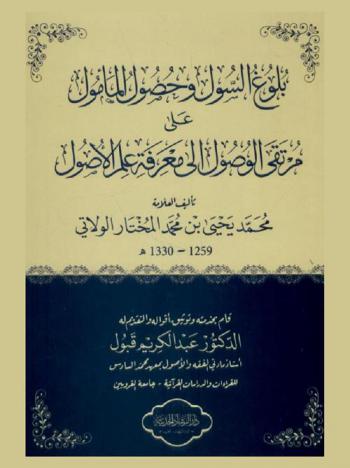 بلوغ السول وحصول المأمول
على
مرتقى الوصول إلى معرفة علم الأصول
تأليف العلامة
محمد يحيى بن محمد المختار الولاتي
1259 - 1330 هـ
قام بخدمته وتوثيق أقواله والتقديم له
الدكتور عبد الكريم قبول
أستاذ مادتي الفقه والأصول بمعهد محمد السادس
للقراءات والدراسات القرآنية - جامعة القرويين
دار الرشاد الحديثة